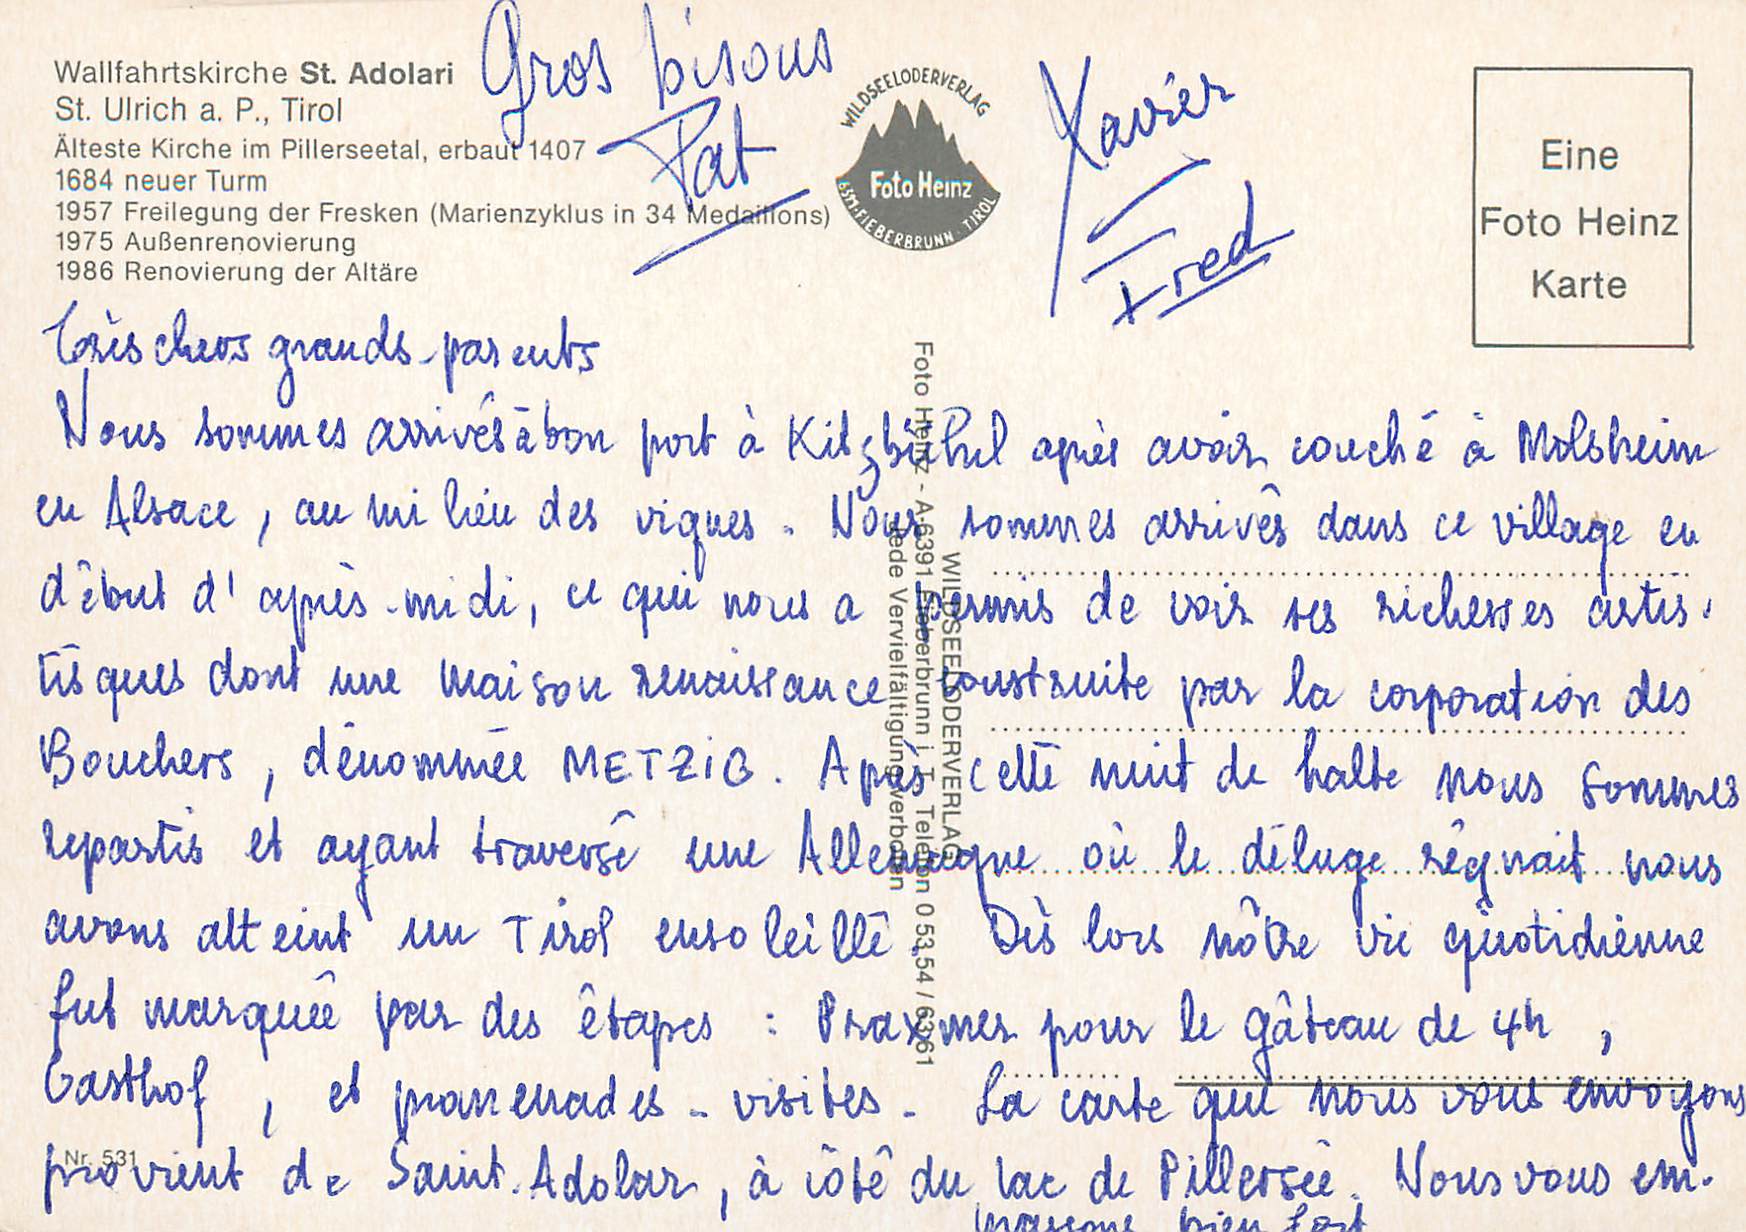 Wallfahrtskirche St. Adolari
St. Ulrich a. P., Tirol
Älteste Kirche im Pillerseetal, erbaut 1407
1684 neuer Turm
1957 Freilegung der Fresken (Marienzyklus in 34 Medaillons)
1975 Außenrenovierung
1986 Renovierung der Altäre
Gros bisous
Pat
WILDSEELODERVERLAG
Foto Heinz
6391 FIEBERBRUNN · TIROL
Xavier
Fred
Eine
Foto Heinz
Karte
Très chers grands-parents
Nous sommes arrivés à bon port à Kitzbühel après avoir couché à Molsheim
en Alsace, au milieu des vignes. Nous sommes arrivés dans ce village en
début d'après-midi, ce qui nous a permis de voir ses richesses artis-
tiques dont une maison renaissance construite par la corporation des
Bouchers, dénommée METZiG. Après cette nuit de halte nous sommes
repartis et ayant traversé une Allemagne où le déluge régnait nous
avons atteint un Tirol ensoleillé. Dès lors nôtre vie quotidienne
fut marquée par des étapes : Praxmer pour le gâteau de 4h,
Gasthof, et promenades-visites. La carte que nous vous envoyons
provient de Saint-Adolar, à côté du lac de Pillersee. Nous vous em-
brassons bien fort
WILDSEELODERVERLAG
Foto Heinz - A-6391 Fieberbrunn i. T. Telefon 0 53 54 / 63 61
Jede Vervielfältigung verboten
Nr. 531